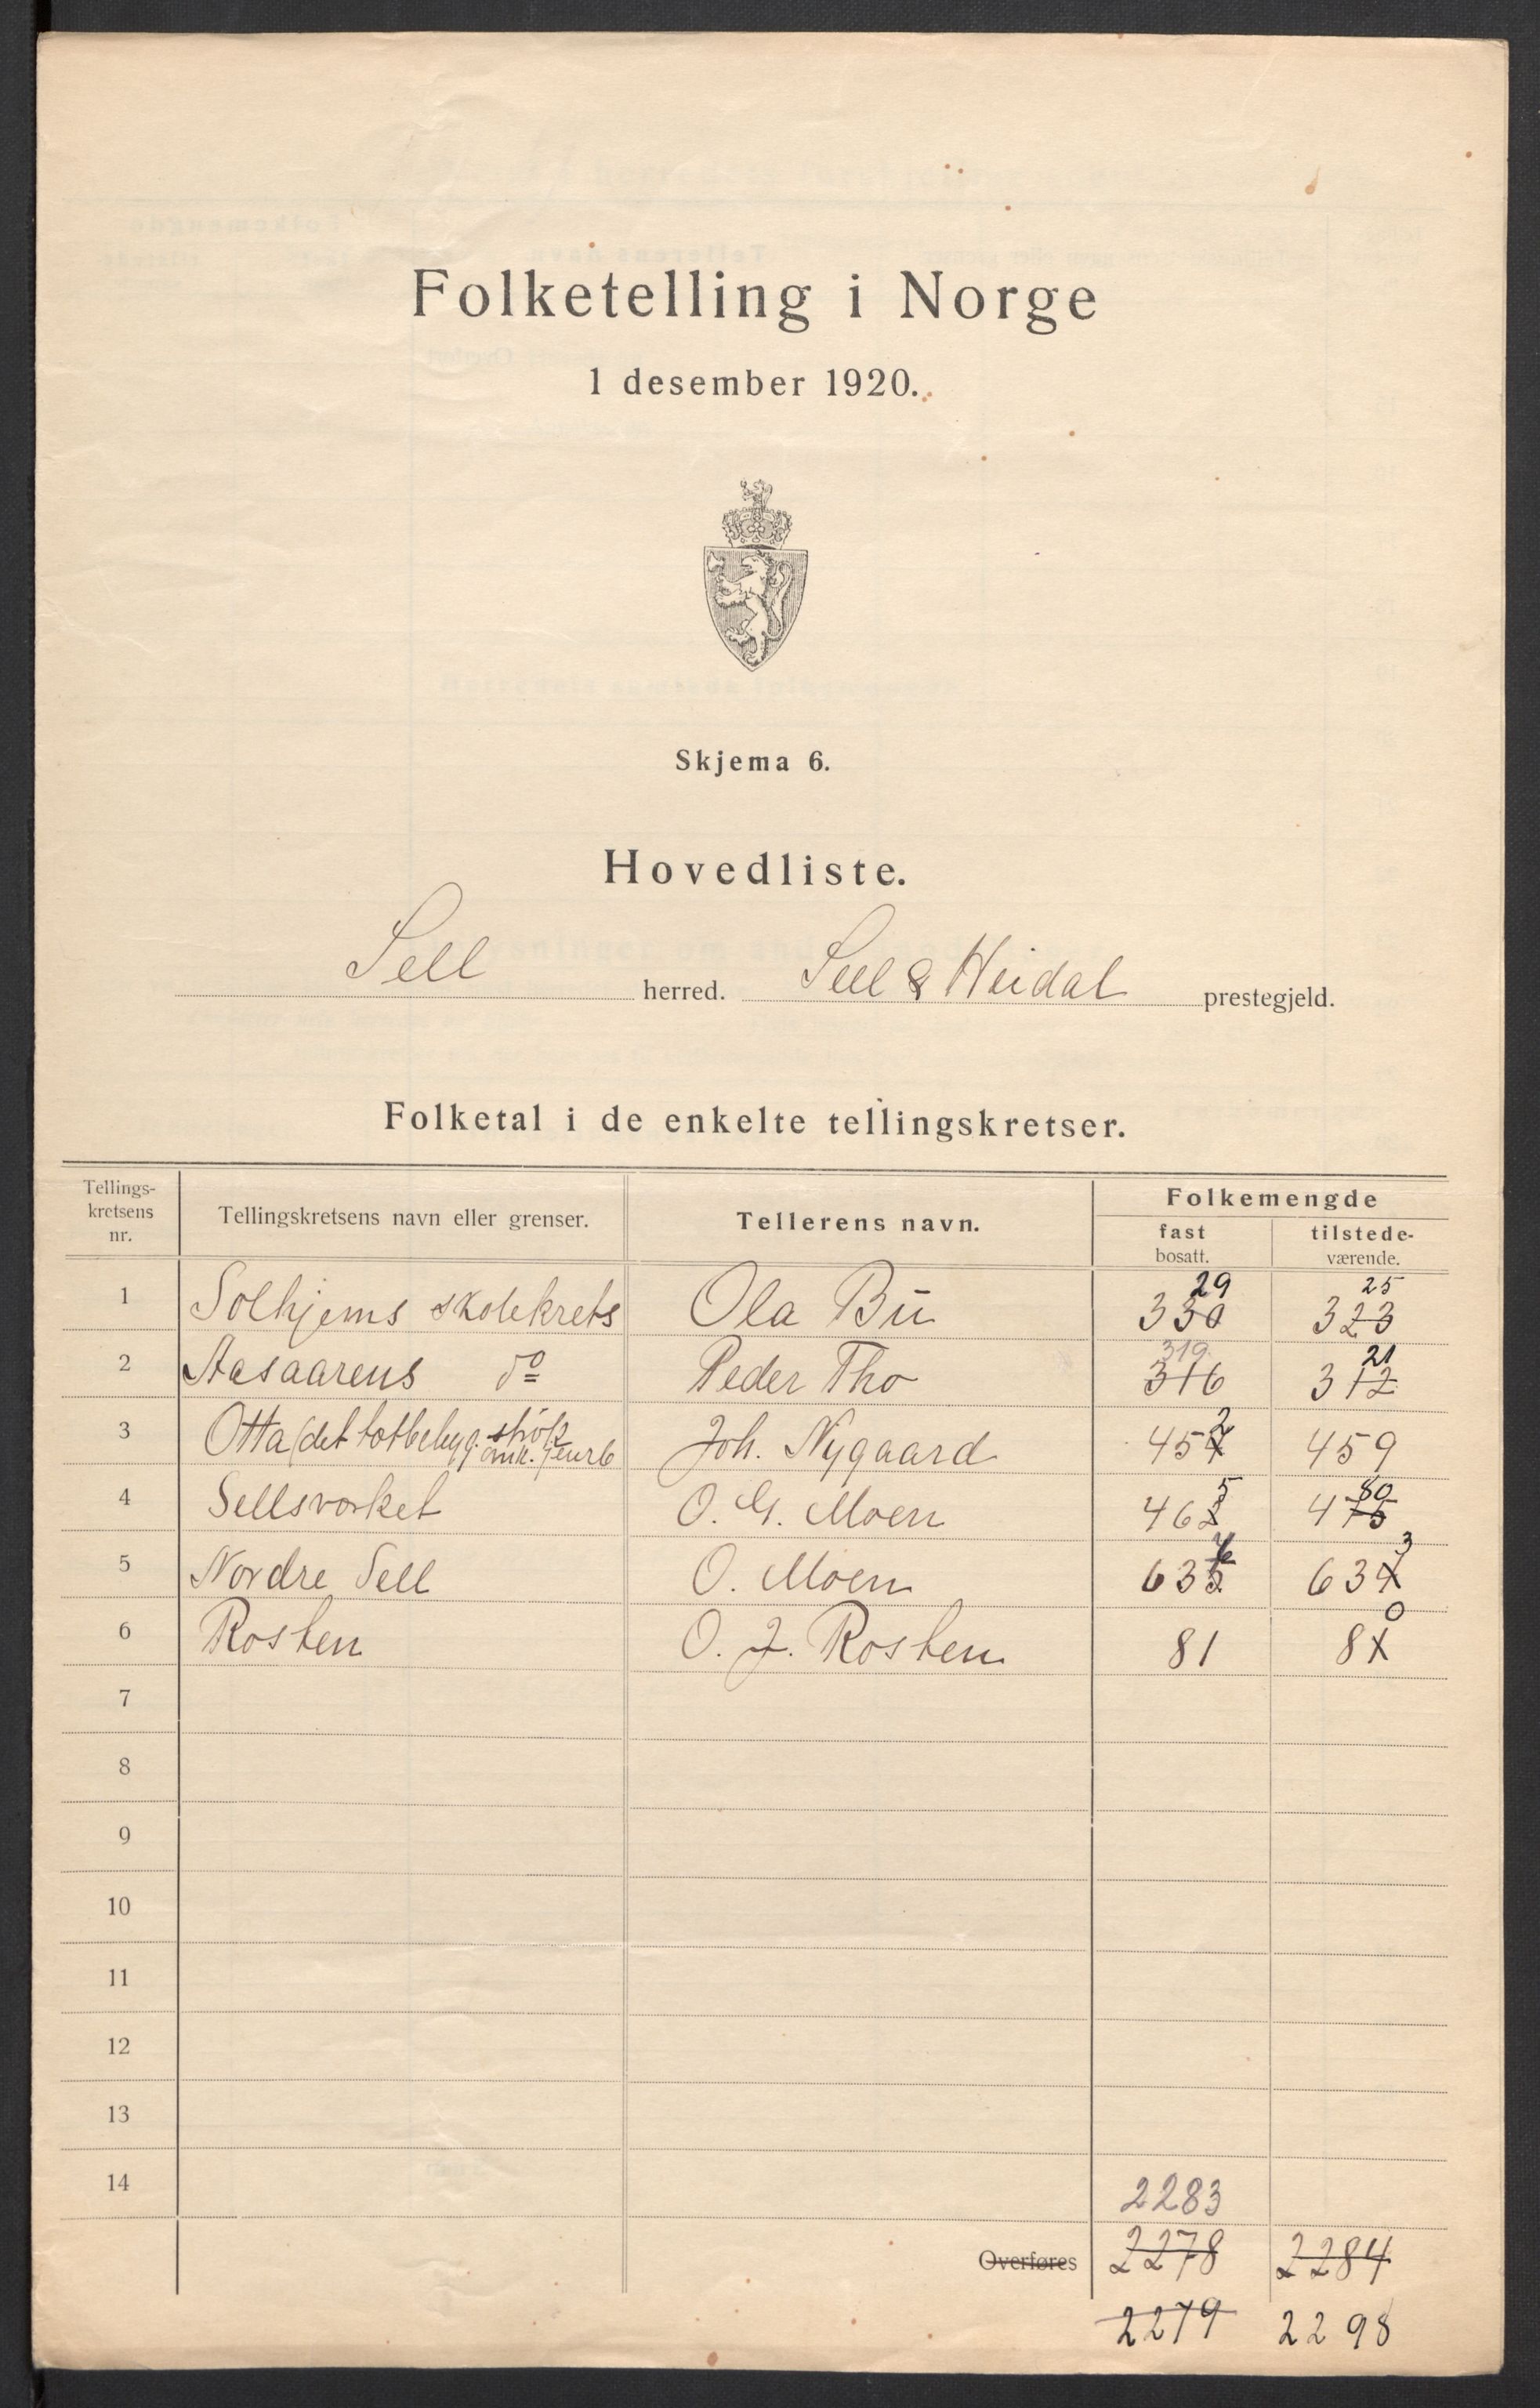 Folketelling i Norge
1 desember 1920.
Skjema 6.
Hovedliste.
Sell herred. Sell & Heidal prestegjeld.
Folketal i de enkelte tellingskretser.
Tellings-kretsens nr. Tellingskretsens navn eller grenser. Tellerens navn. Folkemengde
fast bosatt. tilstede-værende.
29 25
1 Solhjems skolekrets Ola Bu 330 323
319 21
2 Aasaarens do Peder Tho 316 312
2
3 Otta (det tætbebyg. strök omk. Johs. Nygaard 454 459
5 80
4 Sellsverket O. G. Moen 462 475
6 3
5 Nordre Sell O. Moen 635 634
0
6 Rosten O. J. Rosten 81 81
7
8
9
10
11
12
13
14 2283
Overføres 2278 2284
2279 2298